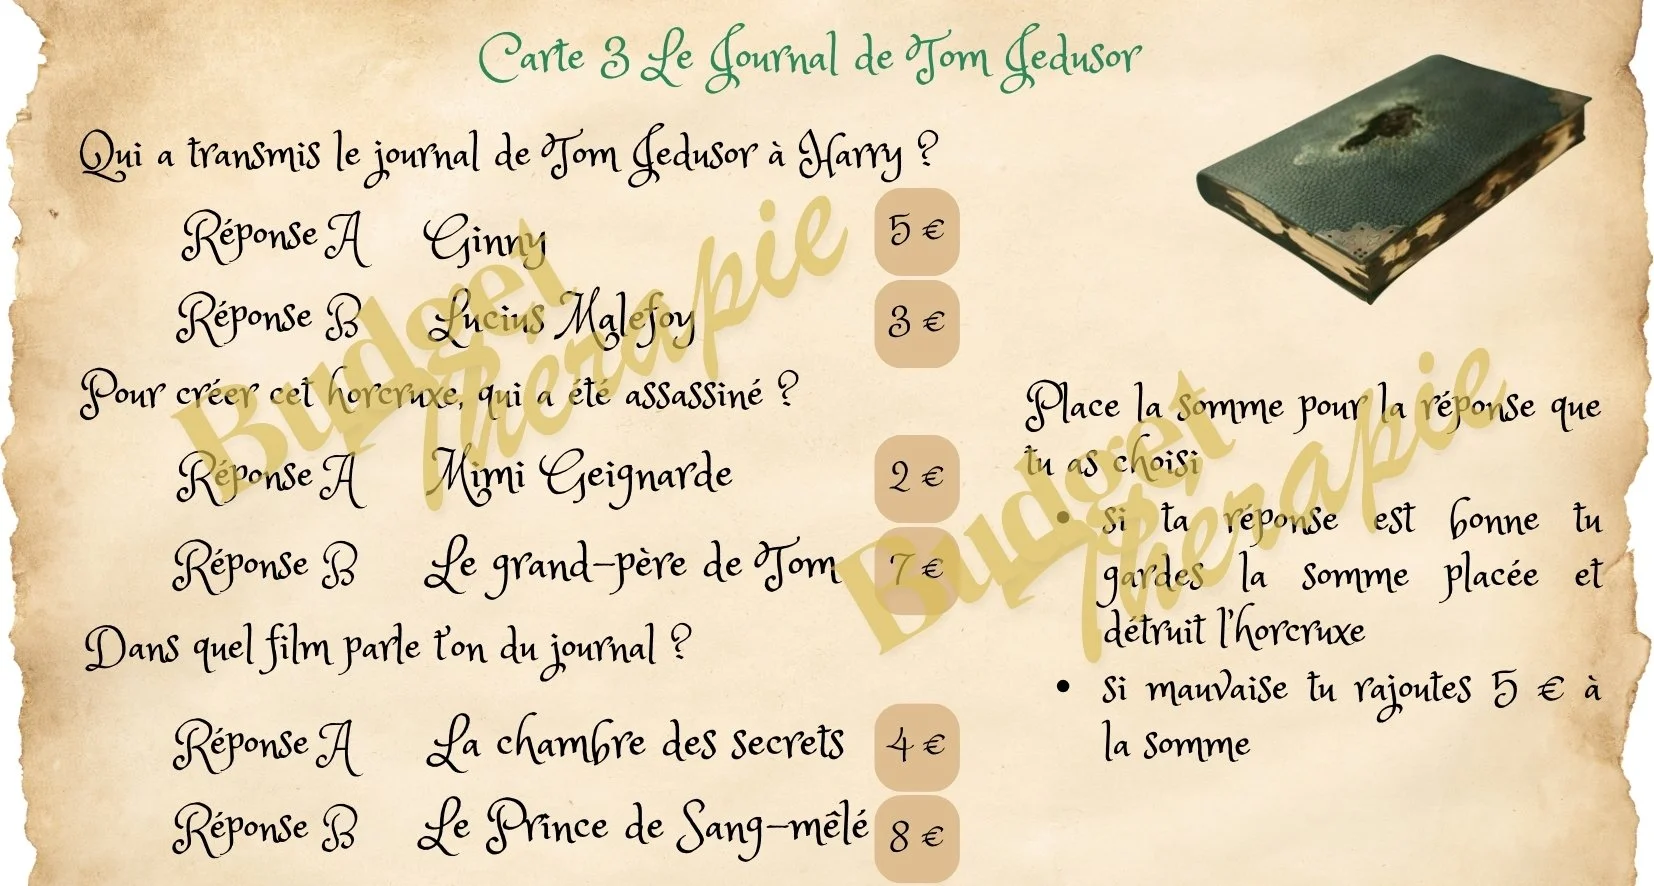 Carte 3 Le Journal de Tom Jedusor
Qui a transmis le journal de Tom Jedusor à Harry ?
Réponse A Ginny 5 €
Réponse B Lucius Malefoy 3 €
Pour créer cet horcruxe, qui a été assassiné ?
Réponse A Mimi Geignarde 2 €
Réponse B Le grand-père de Tom 7 €
Dans quel film parle t'on du journal ?
Réponse A La chambre des secrets 4 €
Réponse B Le Prince de Sang-mêlé 8 €
Place la somme pour la réponse que
tu as choisi
• si ta réponse est bonne tu
gardes la somme placée et
détruit l'horcruxe
• si mauvaise tu rajoutes 5 € à
la somme
Budget
Therapie
Budget
Therapie